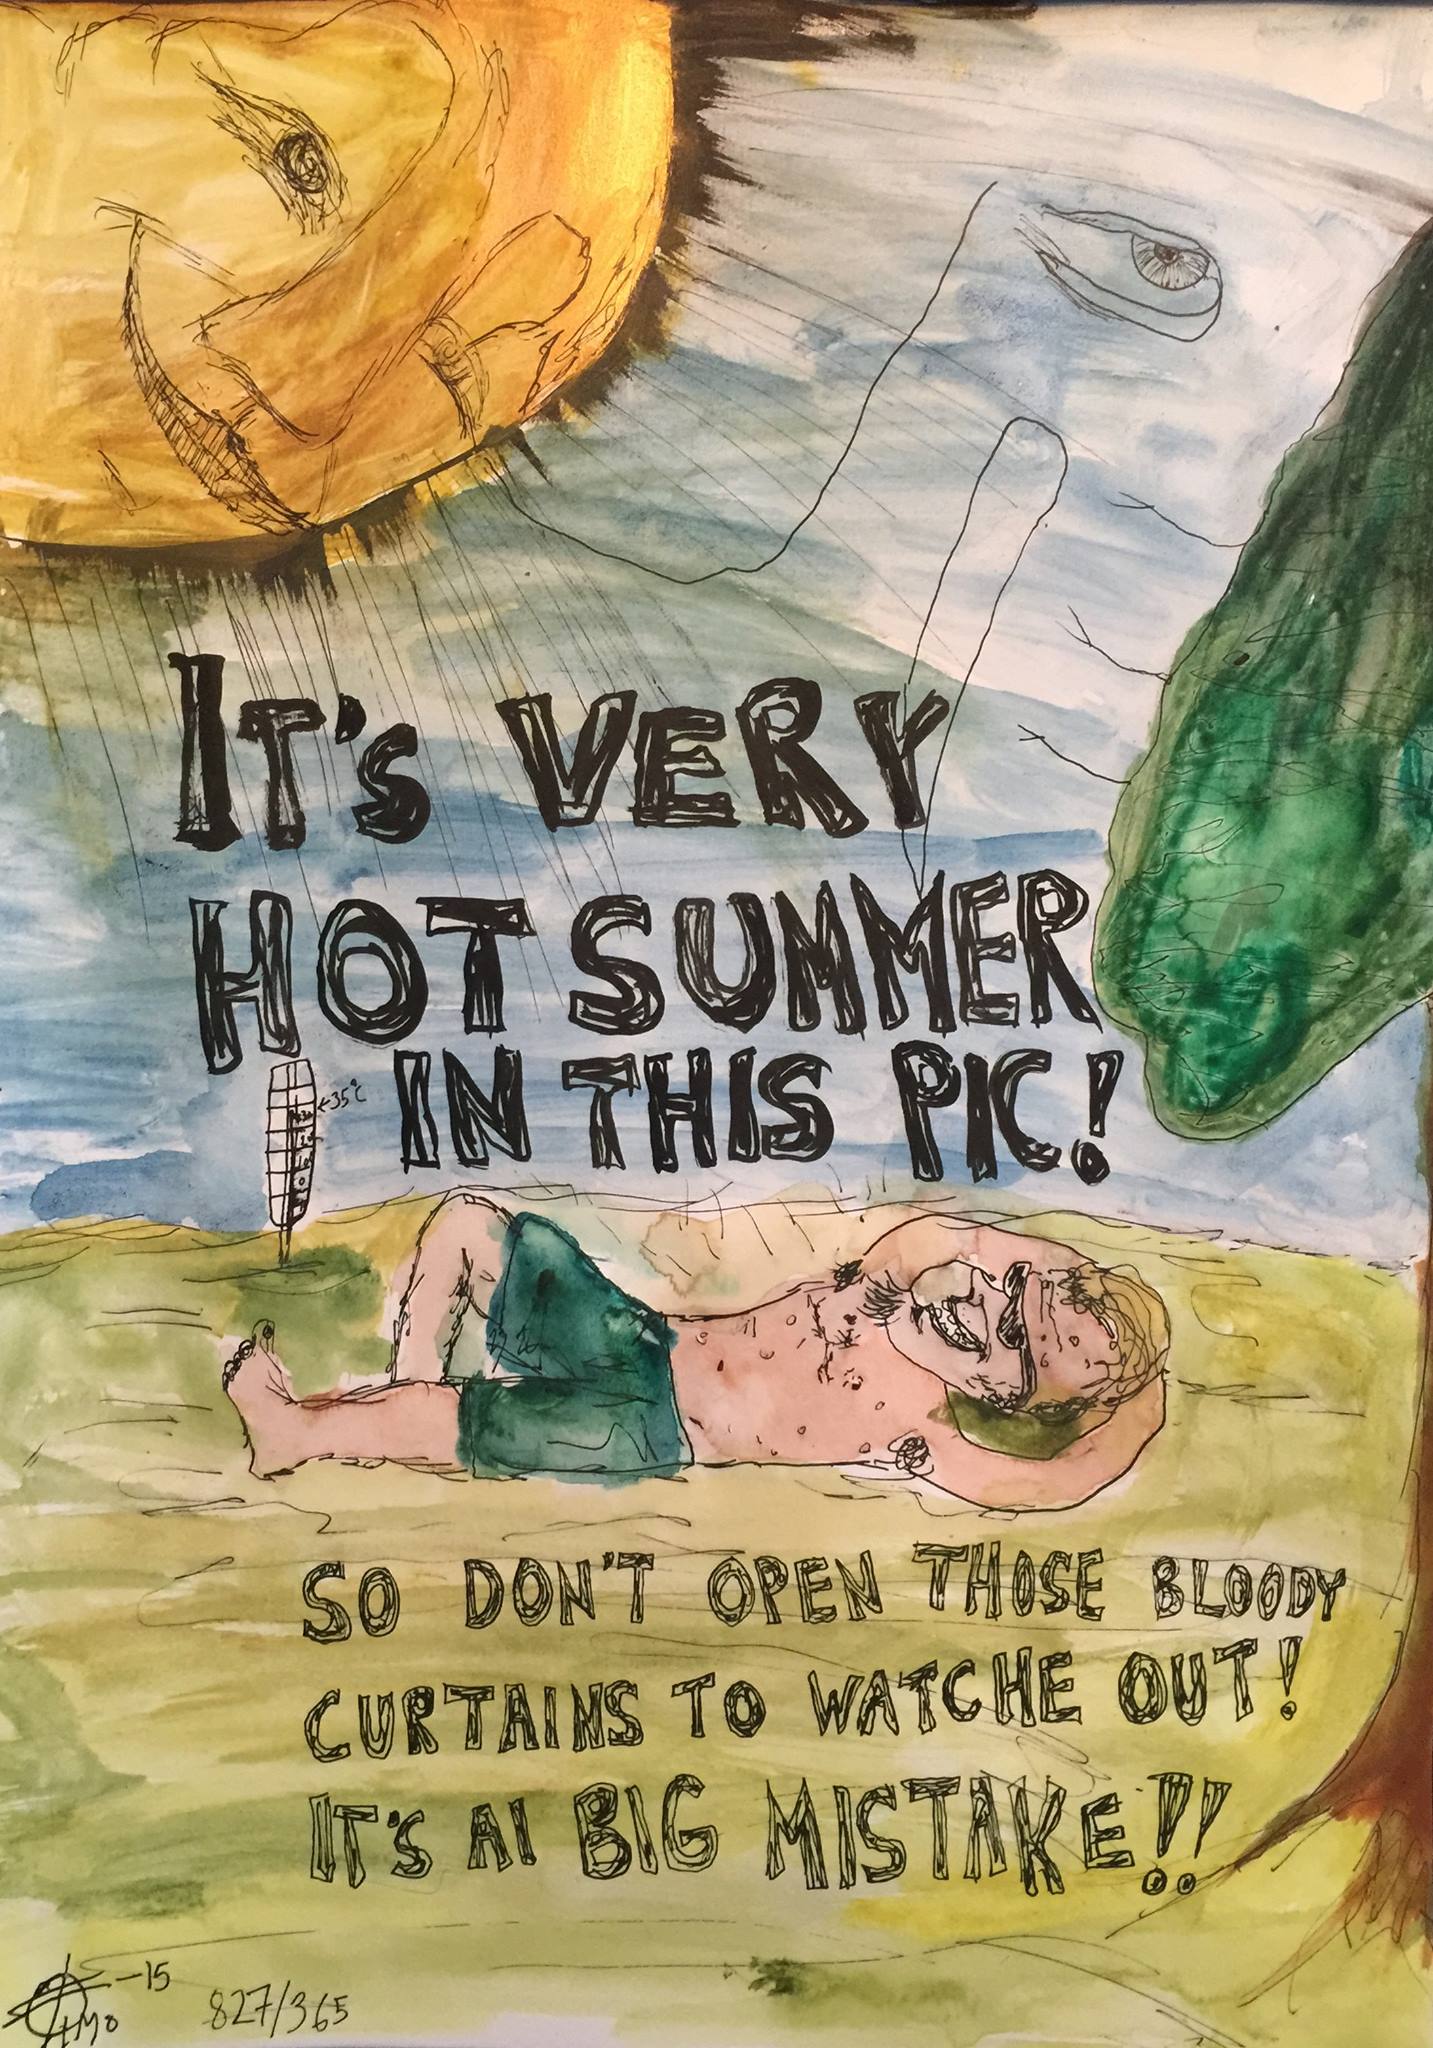 IT'S VERY
HOT SUMMER
←35°C
IN THIS PIC!
SO DON'T OPEN THOSE BLOODY
CURTAINS TO WATCHE OUT!
IT'S AI BIG MISTAKE!!
-15
827/365